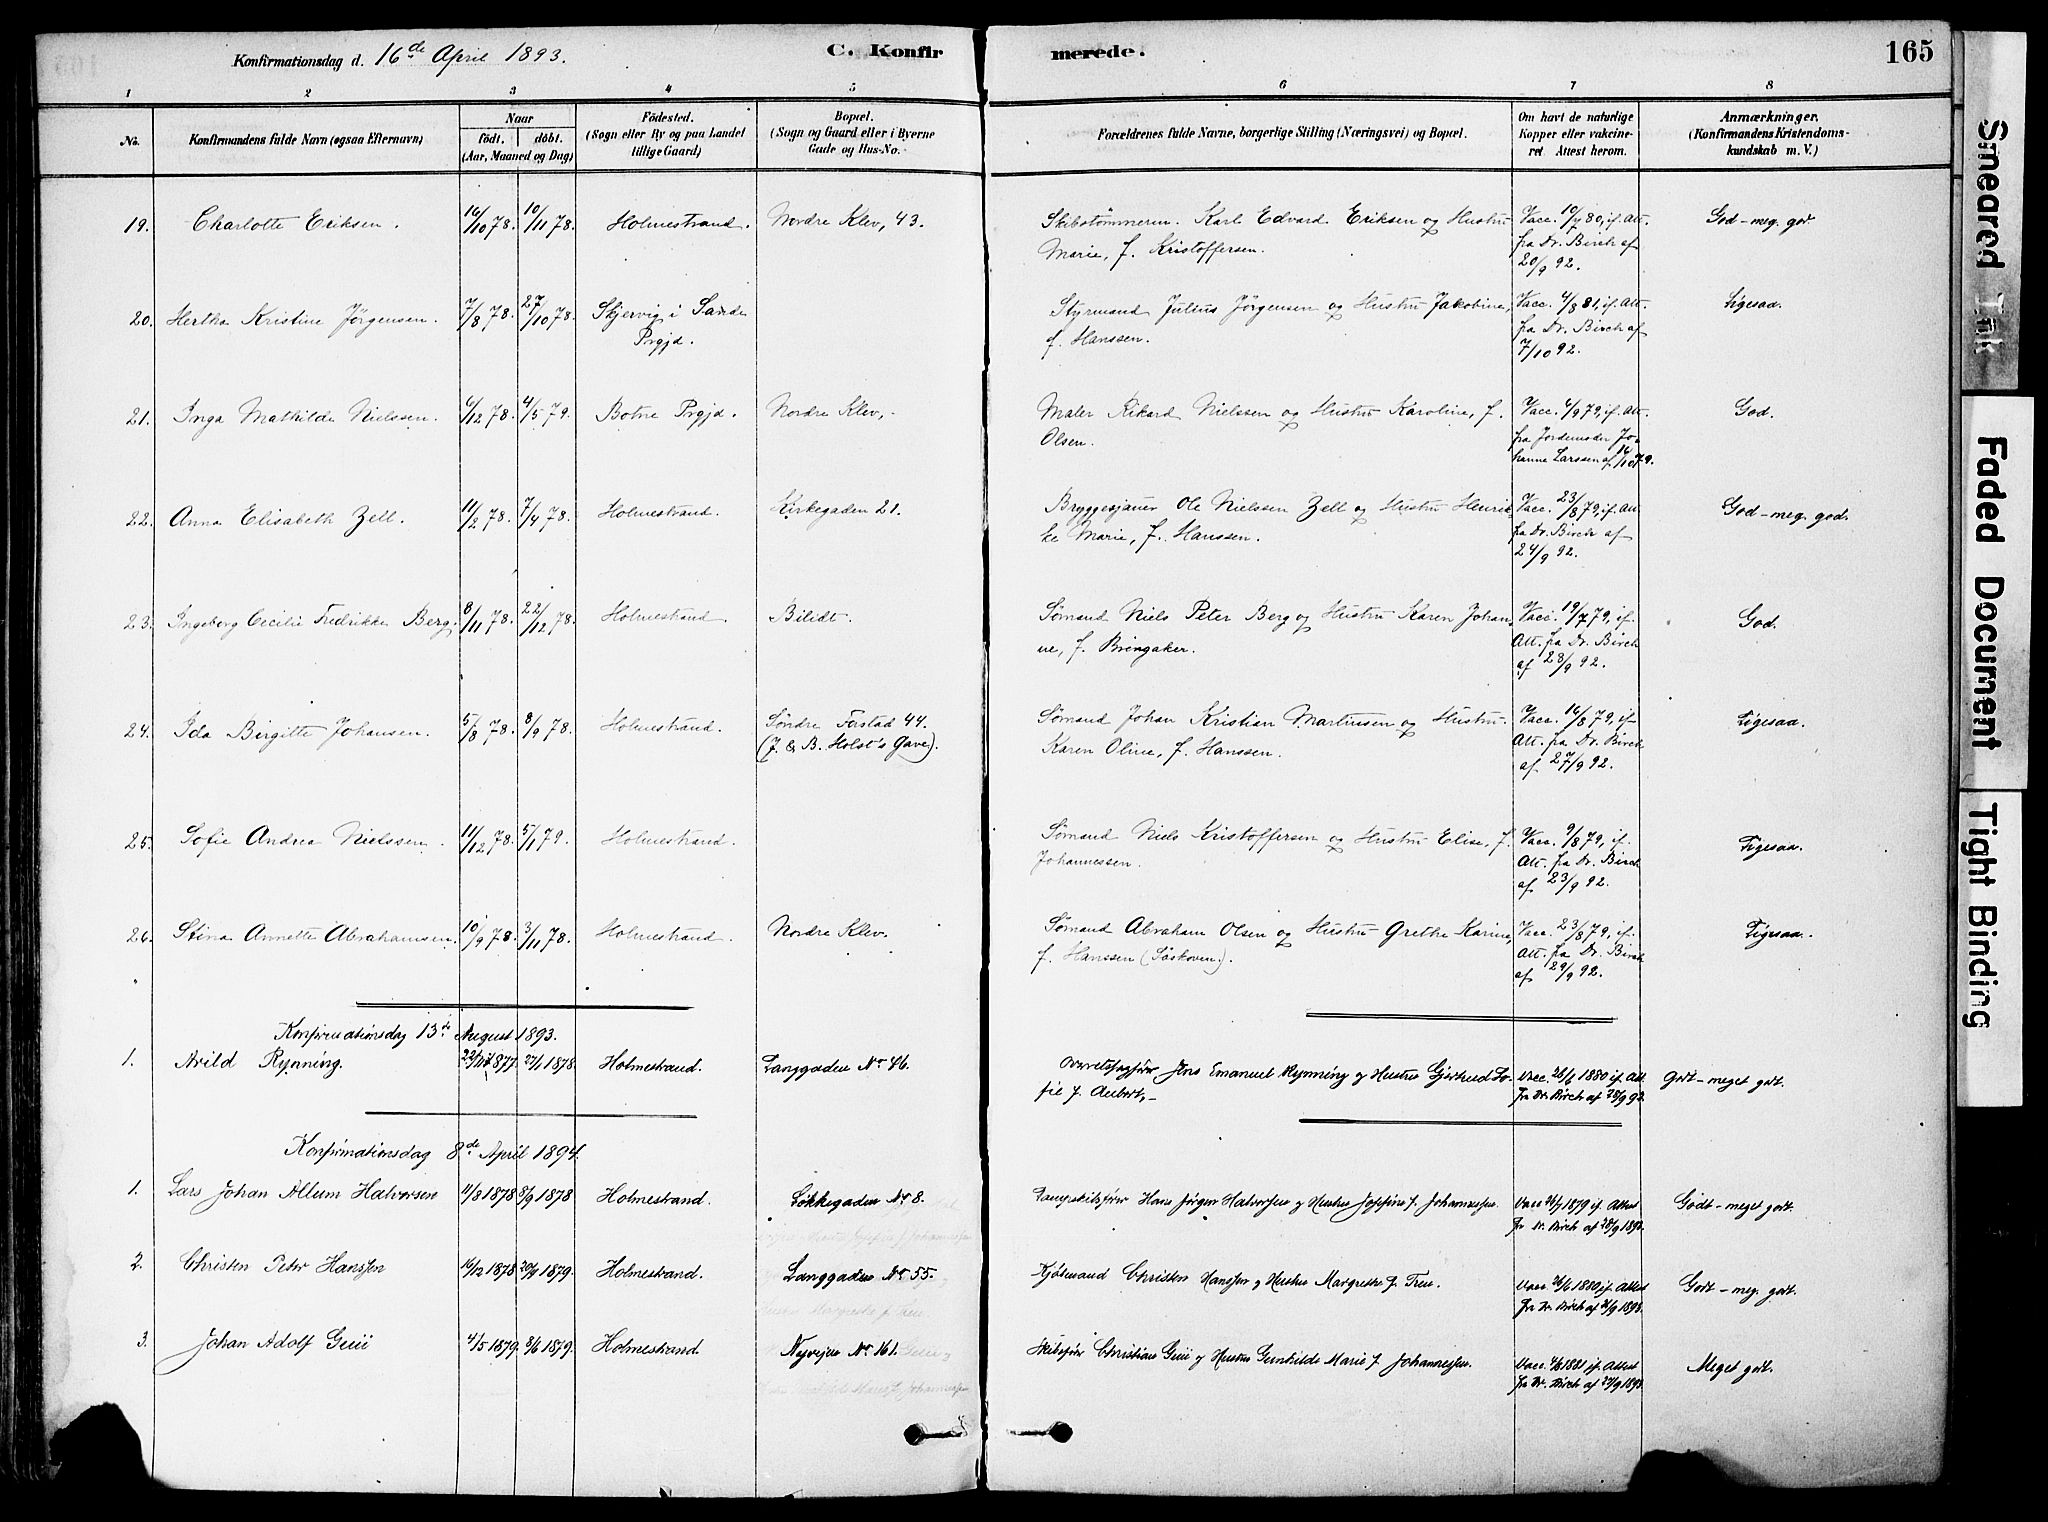 Konfirmationsdag d. 16de April 1893.
C. Konfirmerede.
165
1 2 3 4 5 6 7 8
No.
Konfirmandens fulde Navn (ogsaa Efternavn)
Naar
födt. döbt.
(Aar, Maaned og Dag)
Födested.
(Sogn eller By og paa Landet
tillige Gaard)
Bopæl.
(Sogn og Gaard eller i Byerne
Gade og Hus-No.
Forældrenes fulde Navne, borgerlige Stilling (Næringsvei) og Bopæl.
Om havt de naturlige
Kopper eller vakcine-
ret Attest herom.
Anmærkninger.
(Konfirmandens Kristendoms-
kundskab m. V.)
19. Charlotte Eriksen. 16/10 78. 10/11 78. Holmestrand. Nordre Klev, 43. Skibstömmerm. Karl Edvard Eriksen og Hustru Vacc. 10/7 80, if. Att. God - meg. god
Marie, f. Kristoffersen. fra Dr. Birch af
20/9 92.
20. Hertha Kristine Jörgensen. 7/8 78. 27/10 78. Skjervig i Sande Styrmand Julius Jörgensen og Hustru Jakobine, Vacc. 4/8 81, if. Att. Ligesaa.
Prgjd. f. Hanssen. fra Dr. Birch af
7/10 92.
21. Inga Mathilde Nielssen. 6/12 78. 4/5 79. Botne Prgjd. Nordre Klev, - Maler Rikard Nielssen og Hustru Karoline, f. Vacc. 6/9 79, if. Att. God.
Olsen. fra Jordemoder Jo-
hanne Larssen af 16/10 79.
22. Anna Elisabeth Zell. 11/2 78. 7/4 78. Holmestrand. Kirkegaden 21. Bryggesjauer Ole Nielssen Zell og Hustru Henrik- Vacc. 23/8 79, if. Att. God - meg. god.
ke Marie, f. Hanssen. fra Dr. Birch af
24/9 92.
23. Ingeborg Cecilie Fredrikke Berg. 8/11 78. 22/12 78. Holmestrand Bilidt. Sømand Niels Peter Berg og Hustru Karen Johan- Vacc. 19/7 79, if. God.
ne, f. Bringaker. Att. fra Dr. Birch
af 28/9 92.
24. Ida Birgitte Johansen. 5/8 78. 8/9 78. Holmestrand. Söndre Forstad 44. Sømand Johan Kristian Martinsen og Hustru Vacc. 16/8 79, if. Ligesaa.
(J. & B. Holst's Gave). Karen Oline, f. Hanssen. Att. fra Dr. Birch
af 27/9 92.
25. Sofie Andrea Nielssen. 11/12 78. 5/1 79. Holmestrand. Sømand Niels Kristoffersen og Hustru Elise, f. Vacc. 9/8 79, if. Ligesaa.
Johannessen. Att. fra Dr. Birch
af 23/9 92.
26. Stina Annette Abrahamsen. 10/9 78. 3/11 78. Holmestrand. Nordre Klev. Sømand Abraham Olsen og Hustru Grethe Karine, Vacc. 23/8 79, if. Ligesaa.
f. Hanssen (Söskoven.). Att. fra Dr. Birch
af 29/9 92.
Konfirmationsdag 13de August 1893.
1. Arild Rynning. 1877. 27/1 1878. Holmestrand. Langgaden No 46. Jens Emanuel Rynning og Hustru Gjertrud So- Vacc. 26/6 1880 if. Att. Godt - meget godt.
fie f. Aubert, - fra Dr. Birch af 28/9 92.
Konfirmationsdag 8de April 1894.
1. Lars Johan Allum Halvorsen 11/8 1878 8/9 1878 Holmestrand. Løkkegaden No 8. Hans Jørgen Halvorsen og Hustru Josefine f. Johannessen. Vacc. 1879 if. Attest Godt - meget godt.
fra Dr. Birch af 28/9 1893.
2. Christen Peter Hanssen 1878 1879. Holmestrand. Langgaden No 55. Kjøbmand Christen Hanssen og Hustru Margrethe f. Treu. Vacc. 26/6 1880 if. Attest Godt - meg. godt.
fra Dr. Birch af 1893.
3. Johan Adolf 4/5 1879. 8/6 1879. Holmestrand. Nyvejen No 161. Skibsfører Christian og Hustru Gunhilde Marie f. Johannessen. Vacc. 1881 if. Attest Meget godt.
fra Dr. Birch af 1893.
Smeared Ink
Faded Document
Tight Binding